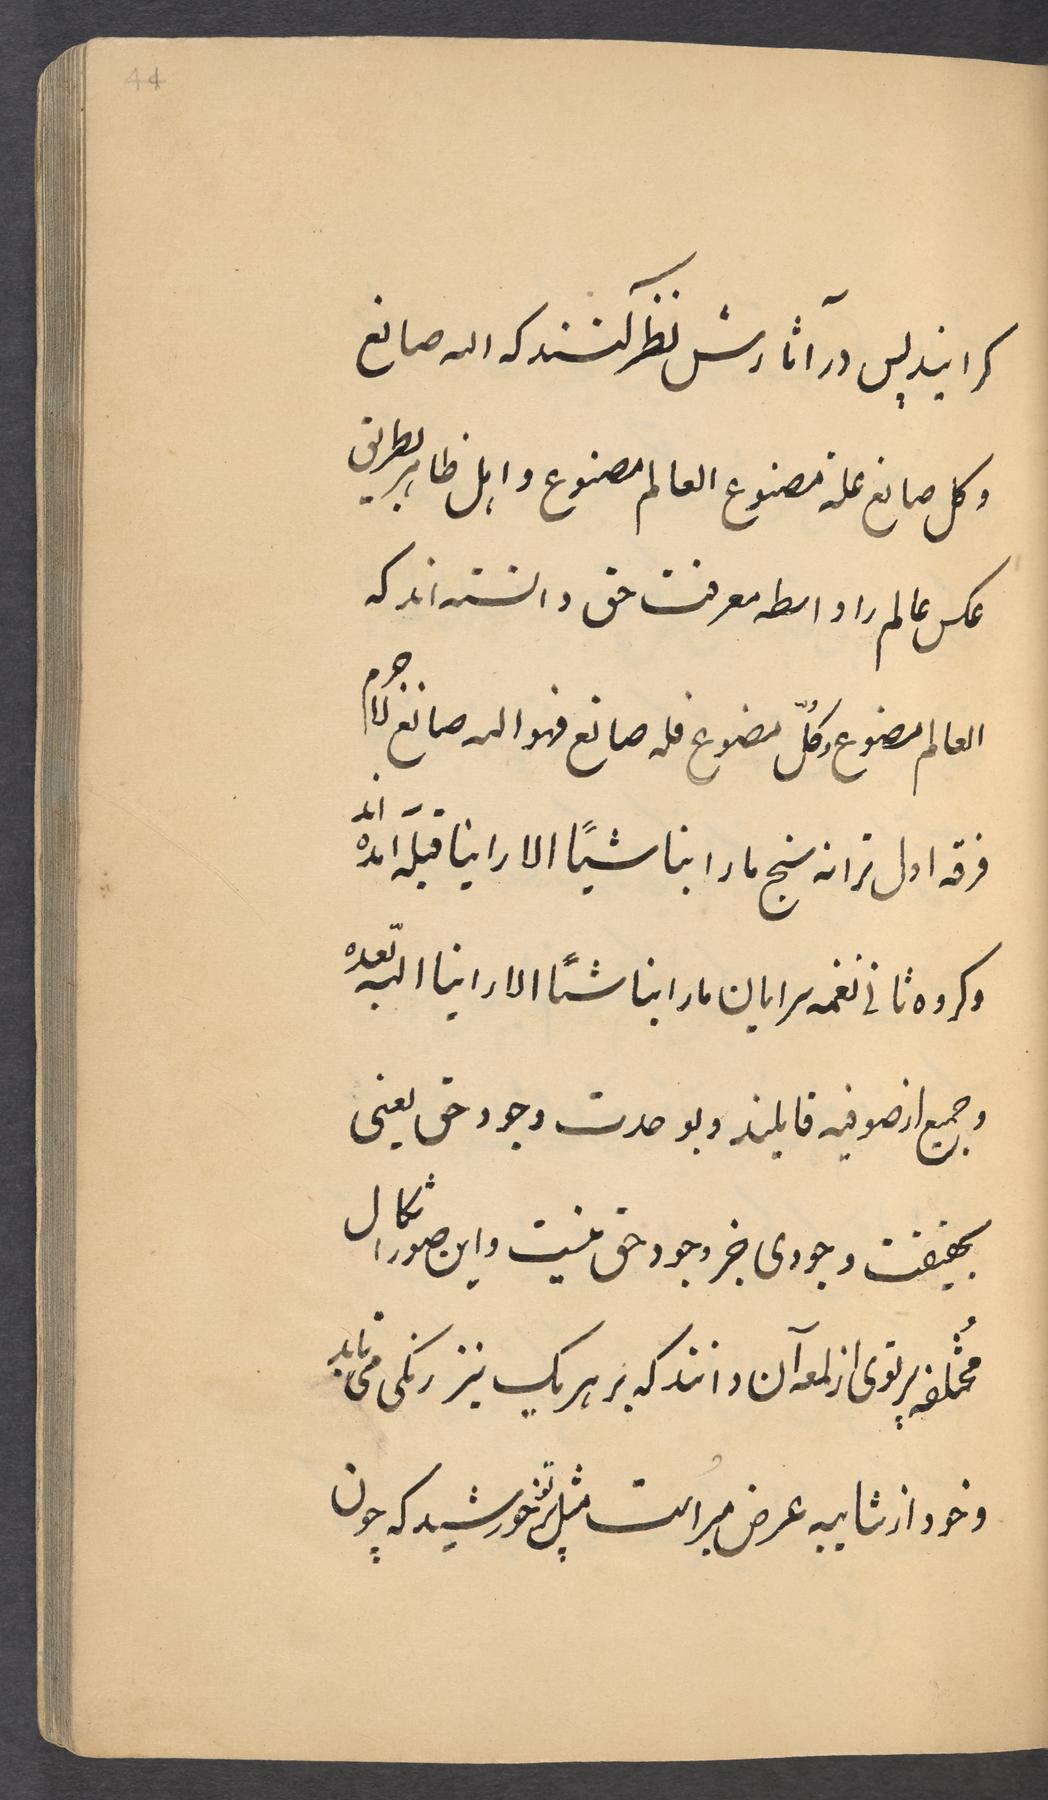 44
کرایند پس در آثارش نظر کنند که الله صانع
و کل صانع عله مصنوع العالم مصنوع و اهل ظاهر بطریق
عکس عالم را واسطه معرفت حق دانسته اند که
العالم مصنوع و کُلّ مصنوع فله صانع فهو الله صانع لاجرم
فرقه اول ترانه سنج ما راینا شیًا الا راینا قبله آمده اند
و کروه ثانی نغمه سرایان ما راینا شیًا الا راینا الله بعده
و جمیع از صوفیه قایلند و بوحدت وجود حق یعنی
بحقیقت وجودی جز وجود حق نیست و این صور اشکال
مُختلفه پرتوی از لمعه آن دانند که بر هر یک نیز رنکی می تابد
و خود از شایبه عرض مبراست مثل پرتو خورشید که چون